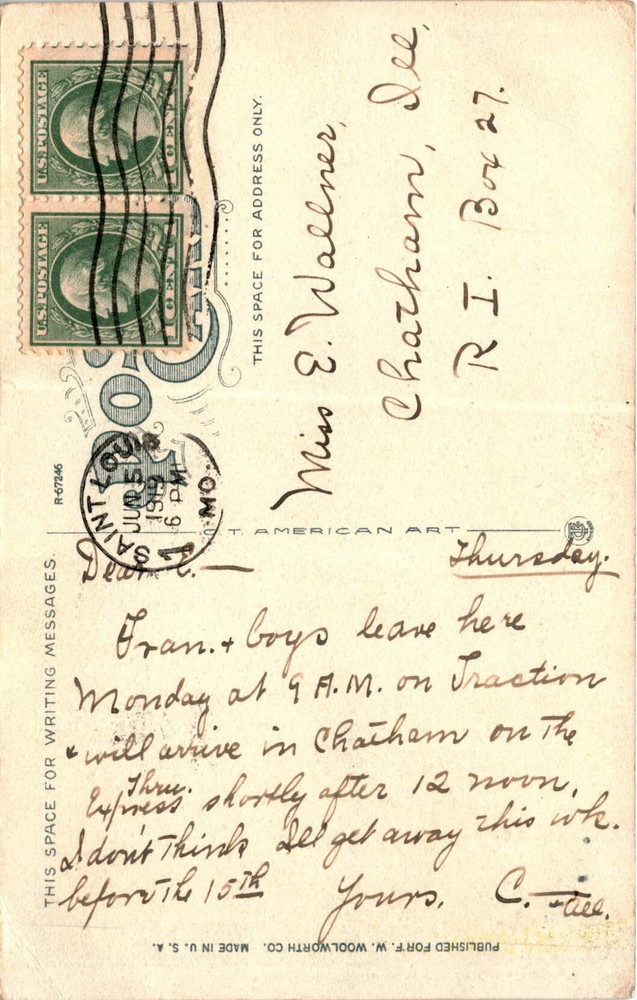 U.S. POSTAGE
1 CENT 1
U.S. POSTAGE
1 CENT 1
POST CARD
THIS SPACE FOR ADDRESS ONLY.
Miss E. Wallner,
Chatham, Ill,
R I. Box 27.
R-67246
SAINT LOUIS
JUN 5
1919
6 PM
MO.
1
C. T. AMERICAN ART
THIS SPACE FOR WRITING MESSAGES.
Thursday.
Dear E. —
Fran. + boys leave here
Monday at 9 A.M. on Traction
+ will arrive in Chatham on the
Thru.
Express shortly after 12 noon,
I don't think I'll get away this wk.
before the 15th
Yours, C. —
PUBLISHED FOR F. W. WOOLWORTH CO. MADE IN U. S. A.